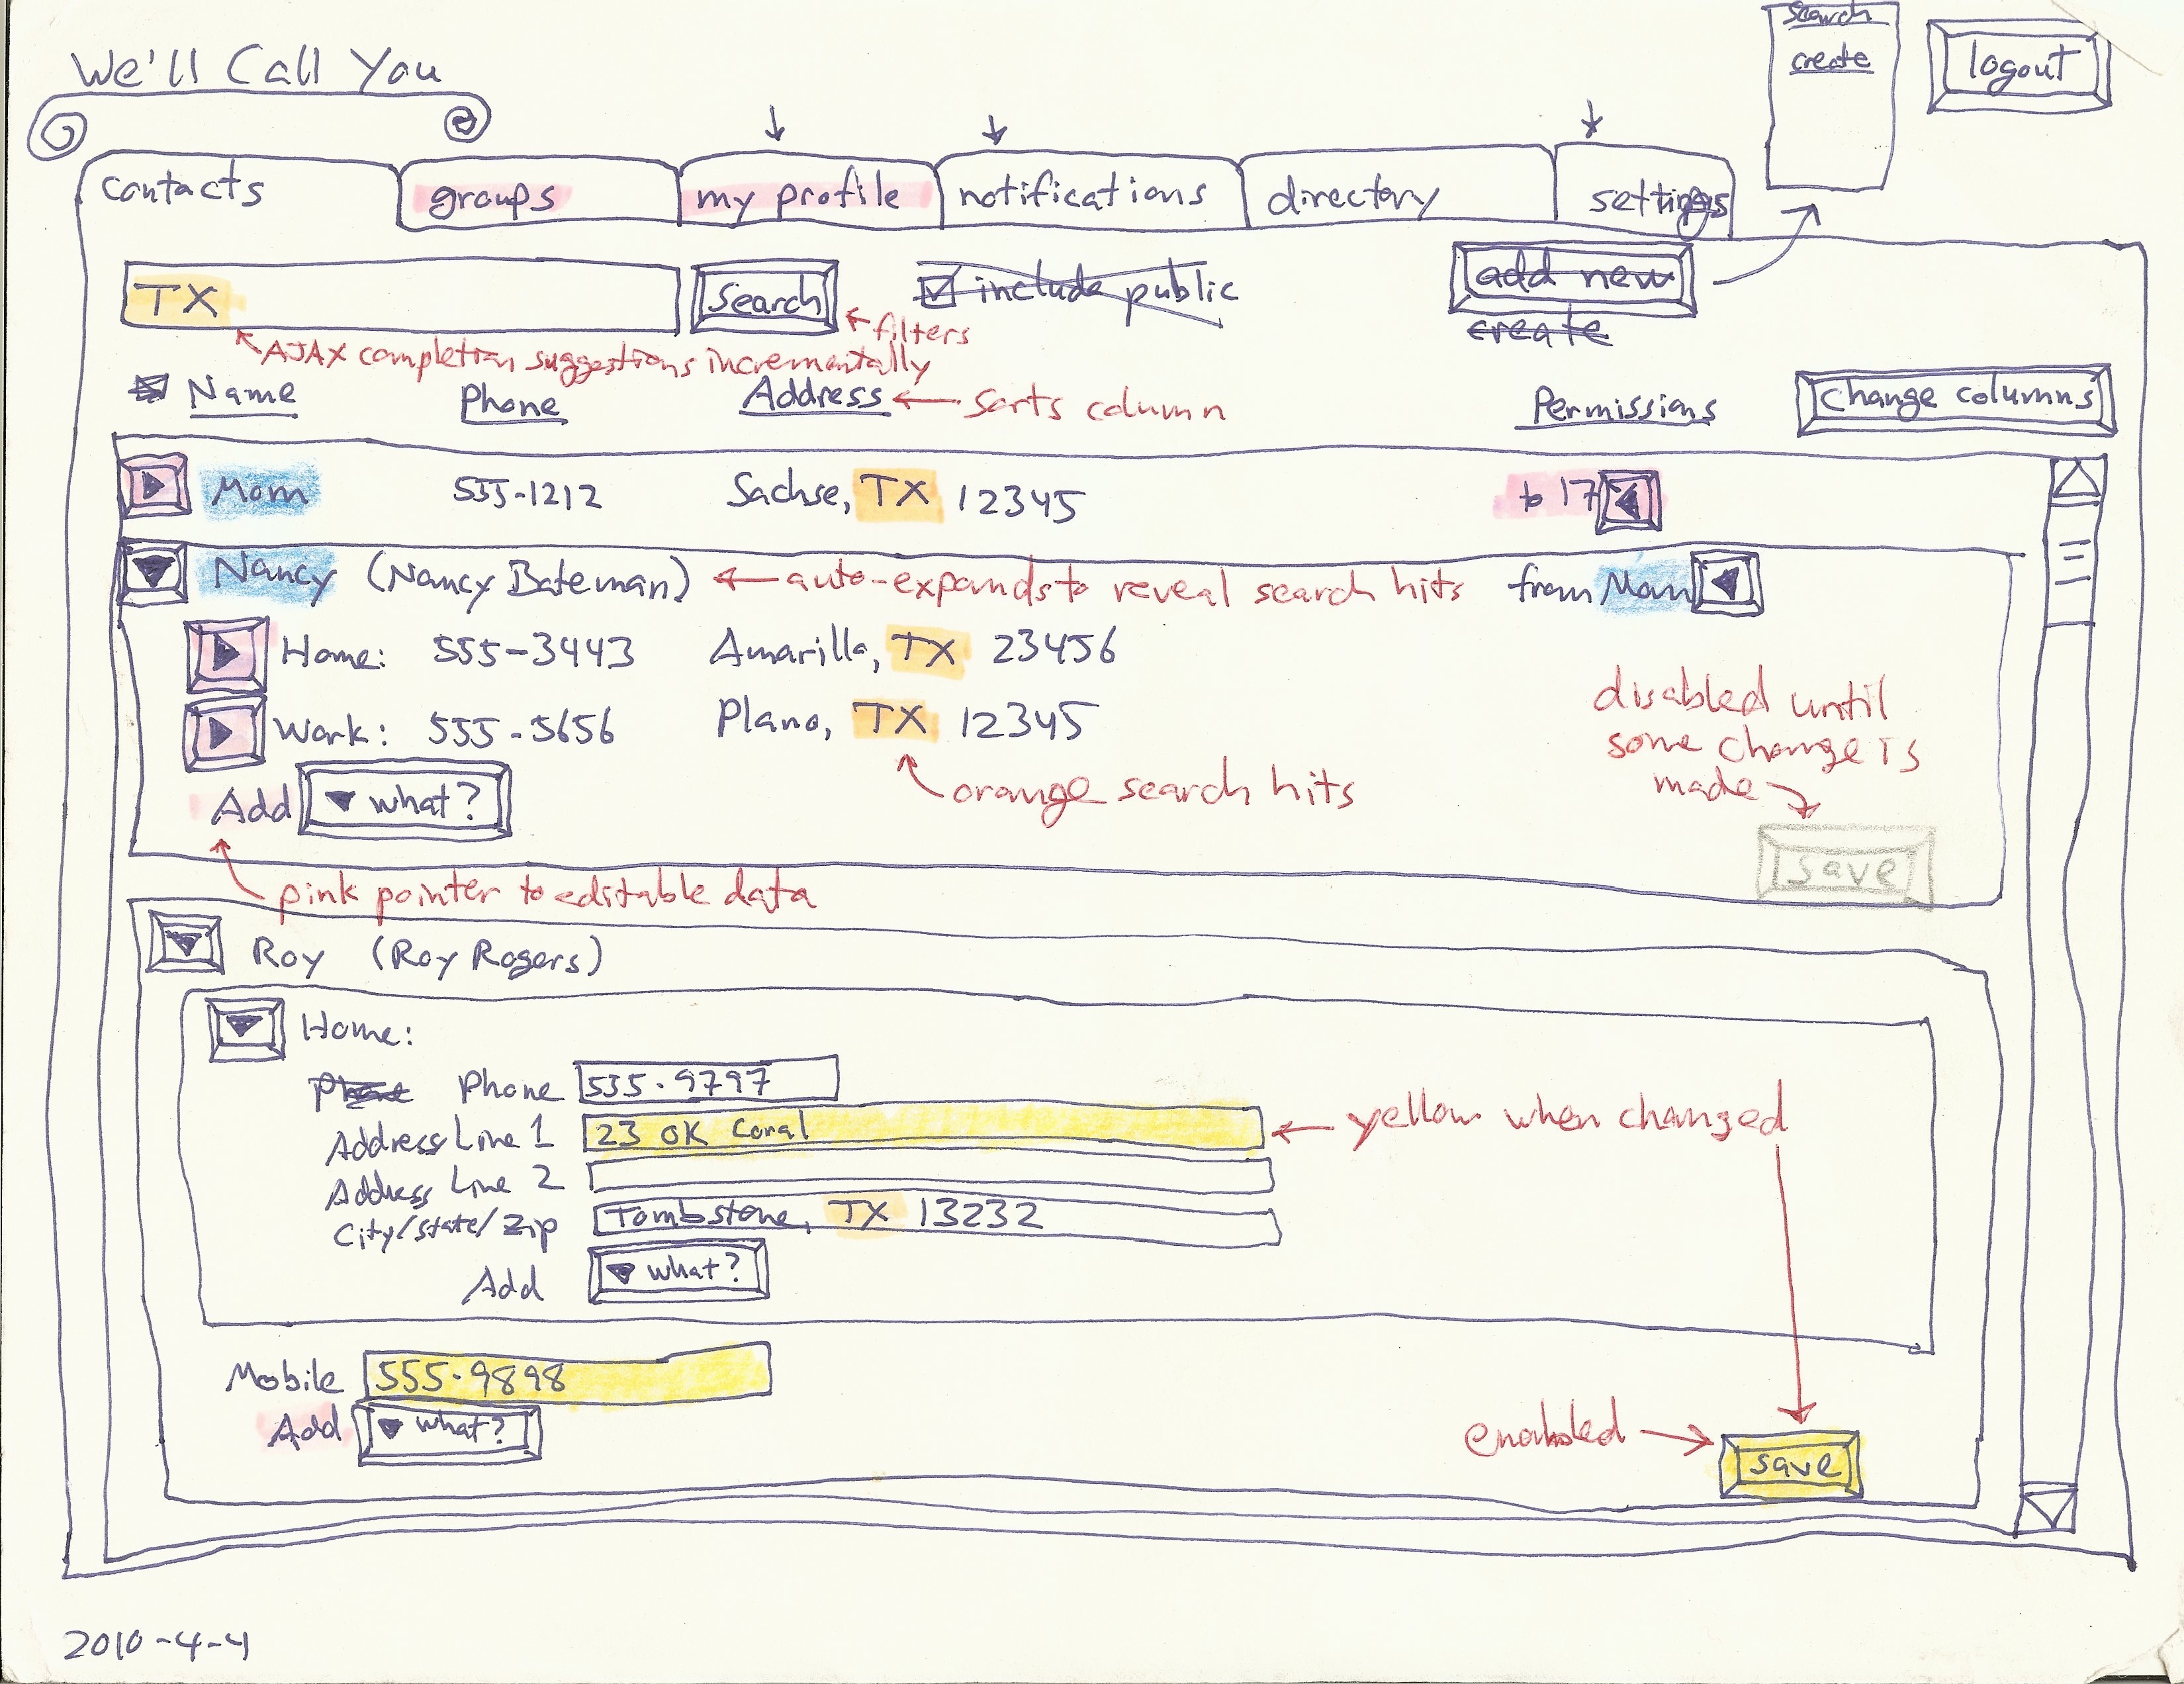 We'll Call You
search
create
logout
contacts groups my profile notifications directory settings
TX Search include public add new
filters
create
AJAX completion suggestions incrementally
Name Phone Address sorts column Permissions change columns
Mom 555-1212 Sachse, TX 12345 to 17
Nancy (Nancy Bateman) auto-expands to reveal search hits from Mom
Home: 555-3443 Amarillo, TX 23456
Work: 555-5656 Plano, TX 12345
disabled until
some change is
made
Add what? orange search hits
save
pink pointer to editable data
Roy (Roy Rogers)
Home:
Phone Phone 555-9797
Address Line 1 23 OK Coral yellow when changed
Address Line 2
City/State/Zip Tombstone, TX 13232
Add what?
Mobile 555-9898
Add what? enabled
save
2010-4-4